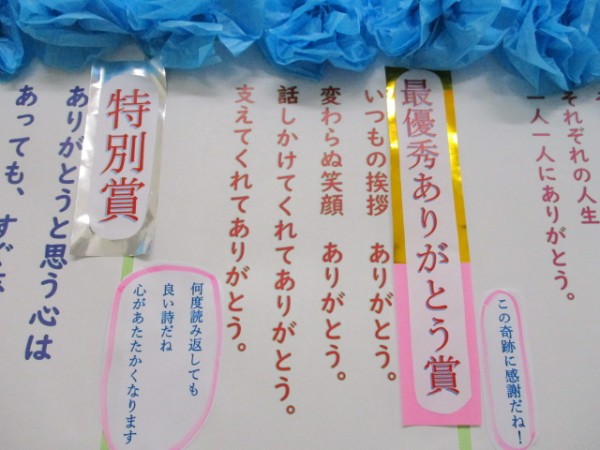 それぞれの人生
一人一人にありがとう。
この奇跡に感謝だね!
最優秀ありがとう賞
いつもの挨拶 ありがとう。
変わらぬ笑顔 ありがとう。
話しかけてくれてありがとう。
支えてくれてありがとう。
何度読み返しても
良い詩だね
心があたたかくなります
特別賞
ありがとうと思う心は
あっても、すぐ